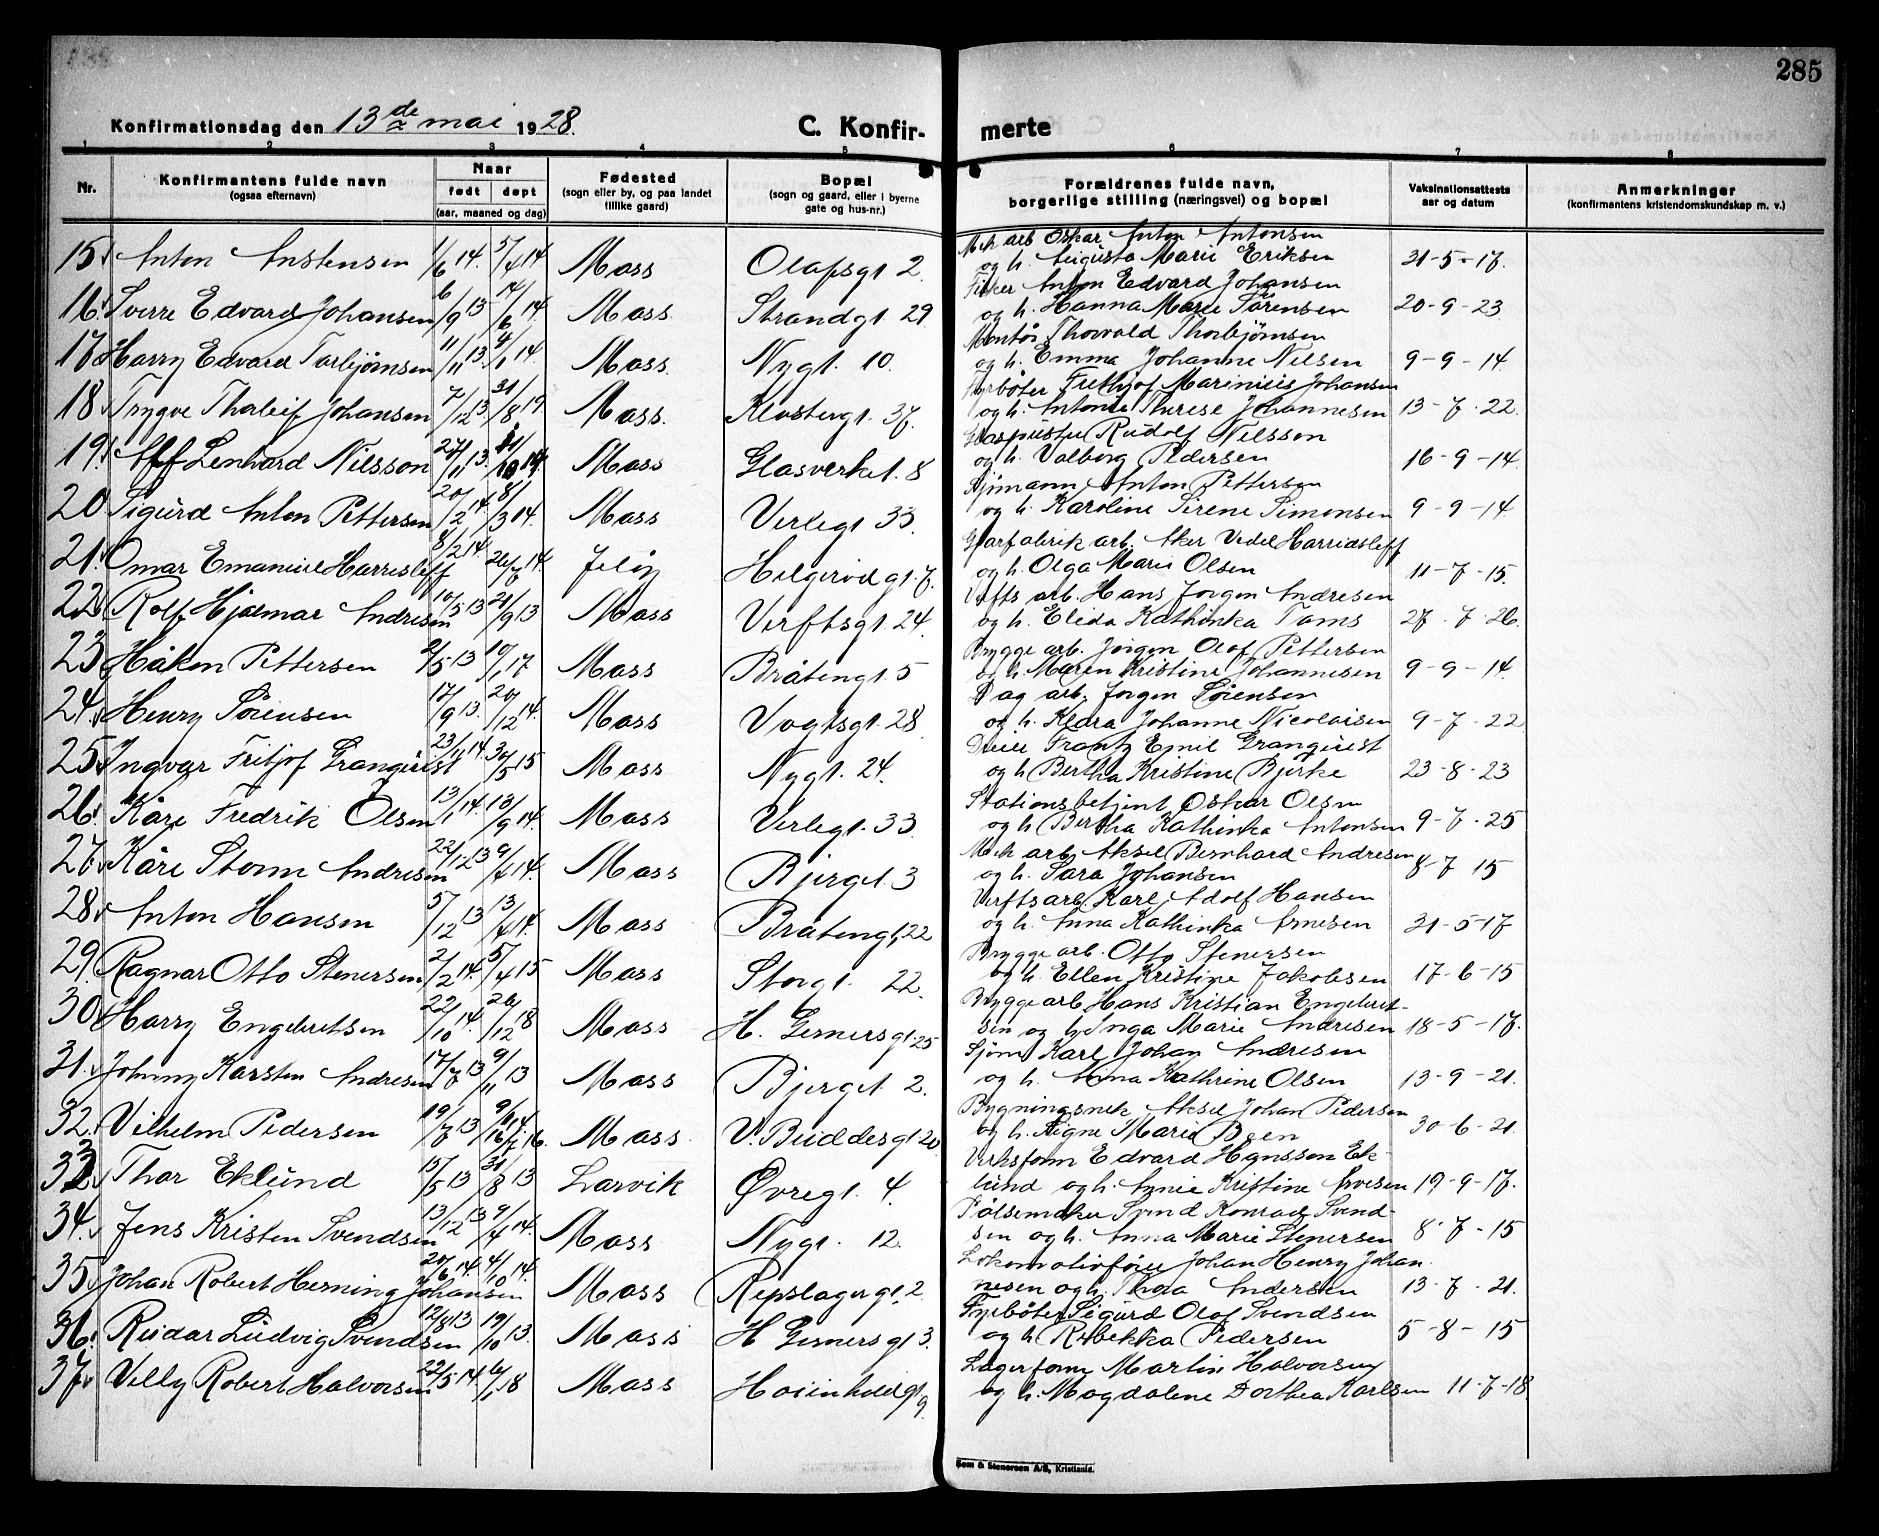 285
Konfirmationsdag den 13de mai 1928.
C. Konfir- merte
1 2 3 4 5 6 7 8
Nr. Konfirmantens fulde navn (ogsaa efternavn) Naar født døpt (aar, maaned og dag) Fødested (sogn eller by, og paa landet tillike gaard) Bopæl (sogn og gaard, eller i byerne gate og hus-nr.) Forældrenes fulde navn, borgerlige stilling (næringsvei) og bopæl Vaksinationsattests aar og datum Anmerkninger (konfirmantens kristendomskundskap m. v.)
15 Anton Antonsen 1/6 14. 5/4 14 Moss Olafsgt 2. Mek arb Oskar Anton Antonsen
og h. Augusta Marie Eriksen 31-5-17.
16 Sverre Edvard Johansen 6/9 13 14/6 14. Moss Strandgt. 29 Fisker Anton Edvard Johansen
og h. Hanna Marie Sørensen 20-9-23
17 Harry Edvard Torbjørnsen 11/11 13. 4/1 14. Moss. Nygt. 10. Montør Thorvald Thorbjørnsen
og h. Emma Johanne Nilsen 9-9-14
18 Trygve Thorleif Johansen 7/12 13. 31/8 19 Moss. Klostergt. 37. Fyrbøter Frithjof Marinius Johansen
og h. Antonie Therese Johannesen 13-7-22.
19 Lenhard Nilsson 27/11 13. 14. Moss Glasverket. 8 Glaspuster Rudolf Nilsson
og h. Valborg Pedersen 16-9-14.
20 Sigurd Anton Pettersen 20/2 14. 8/3 14. Moss Verlegt 33. Sjømann Anton Pettersen
og h. Karoline Sirene Simonsen 9-9-14.
21. Omar Emanuel Harrisleff 8/2 14. 26/7 14. Jeløy Helgerødgt. 7. arb. Aker Vedel Harridsleff
og h. Olga Marie Olsen 11-7-15.
22 Rolf Hjalmar Andresen 10/5 13 21/9 13 Moss Verftsgt 24. Verfts arb. Hans Jørgen Andresen
og h. Elida Kathinka Toms 27.7.26.
23 Håkon Pettersen 2/5 13 10/1 17 Moss Bråtengt. 5 Brygge arb. Jørgen Olof Pettersen
og h. Maren Kristine Johannesen 9-9-14.
24 Henry Sørensen 17/9 13. 20/12 14. Moss Vogtsgt. 28. Dag arb. Jørgen Sørensen
og h. Klara Johanne Nicolaisen 9-7-22
25 Ingvar Fritjof Granquist 23/11 14. 30/5 15 Moss Nygt. 24. Dreier Frantz Emil Granquist
og h Bertha Kristine Bjerke 23-8-23
26 Kåre Fredrik Olsen 13/1 14. 13/9 14. Moss Verlegt. 33. Stationsbetjent Oskar Olsen
og h. Bertha Kathinka Antonsen 9-7-25
27 Kåre Storm Andresen 22/12 13 9/4 14. Moss Bjergt. 3 Mek arb Aksel Bernhard Andresen
og h. Sara Johansen 8-7 15
28 Anton Hansen 5/12 13 13/4 14. Moss Bråtengt, 22 Verftsarb. Karl Adolf Hansen
og h. Anna Kathinka Arnesen 31-5-17
29. Ragnar Otto Stenersen 2/2 14. 5/4 15 Moss Storgt. 22. Brygge arb. Otto Stenersen
og h. Ellen Kristine Jakobsen 17-6-15
30 Harry Engebretsen 22/10 14. 26/12 18 Moss H. Gernersgt. 25 Bryggearb Hans Kristian Engebret-
sen og h. Inga Marie Andresen 18-5-17.
31. Johnny Karsten Andresen 17/7 13 9/11 13 Moss Bjergt 2. Sjøm. Karl Johan Andresen
og h. Anna Kathrine Olsen 13-9-21.
32. Vilhelm Pedersen 19/7 13 Moss. V. Buddesgt. 20 Bygningssnek Aksel Johan Pedersen
og h. Signe Marie Boen 30-6-21.
33 Thor Eklund 15/5 13 31/8 13 Larvik Øvregt. 4. Verksform Edvard Hansson Ek-
lund og h. Annie Kristine 19-9-17.
34. Jens Kristen Svendsen 13/12 13 9/4 14. Moss Nygt. 12. Pølsemaker Svend Konrad Svend-
sen og h. Anna Marie Stenersen 8-7-15
35 Johan Robert Herning Johansen 20/6 14. 4/10 14. Moss Repslagergt. 2. Lokomotivfører Johan Henry Johan
nesen og h. Thora Andersen 13-7-21.
36 Reidar Ludvig Svendsen 12/8 13 19/10 13. Moss H Gernersgt 3. Fyrbøter Sigurd Olof Svendsen
og h Rebekka Pedersen 5-8-15
37 Villy Robert Halvorsen 22/5 14 6/1 18 Moss Hoienholdgt 9. Lagerform Martin Halvorsen
og h. Magdalene Dorthea Karlsen 11-7-18
Sem & Stenersen A/S, Kristiania.